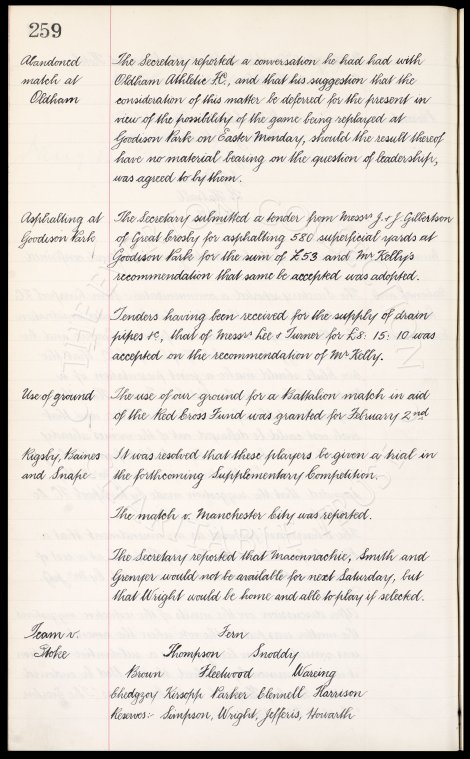 259
Abandoned
match at
Oldham
The Secretary reported a conversation he had had with
Oldham Athletic F.C., and that his suggestion that the
consideration of this matter be deferred for the present in
view of the possibility of the game being replayed at
Goodison Park on Easter Monday, should the result thereof
have no material bearing on the question of leadership,
was agreed to by them.
Asphalting at
Goodison Park
The Secretary submitted a tender from Messrs J. & J. Gilbertson
of Great Crosby for asphalting 580 superficial yards at
Goodison Park for the sum of £53 and Mr Kelly's
recommendation that same be accepted was adopted.
Tenders having been received for the supply of drain
pipes &c, that of Messrs Lee & Turner for £8: 15: 10 was
accepted on the recommendation of Mr Kelly.
Use of ground
The use of our ground for a Battalion match in aid
of the Red Cross Fund was granted for February 2nd.
Rigsby, Baines
and Snape
It was resolved that these players be given a trial in
the forthcoming Supplementary Competition.
The match v. Manchester City was reported.
The Secretary reported that Maconnachie, Smith and
Grenyer would not be available for next Saturday, but
that Wright would be home and able to play if selected.
Team v.
Stoke
Fern
Thompson Snoddy
Brown Fleetwood Wareing
Chedgzoy Kirsopp Parker Clennell Harrison
Reserves:- Simpson, Wright, Jefferis, Howarth